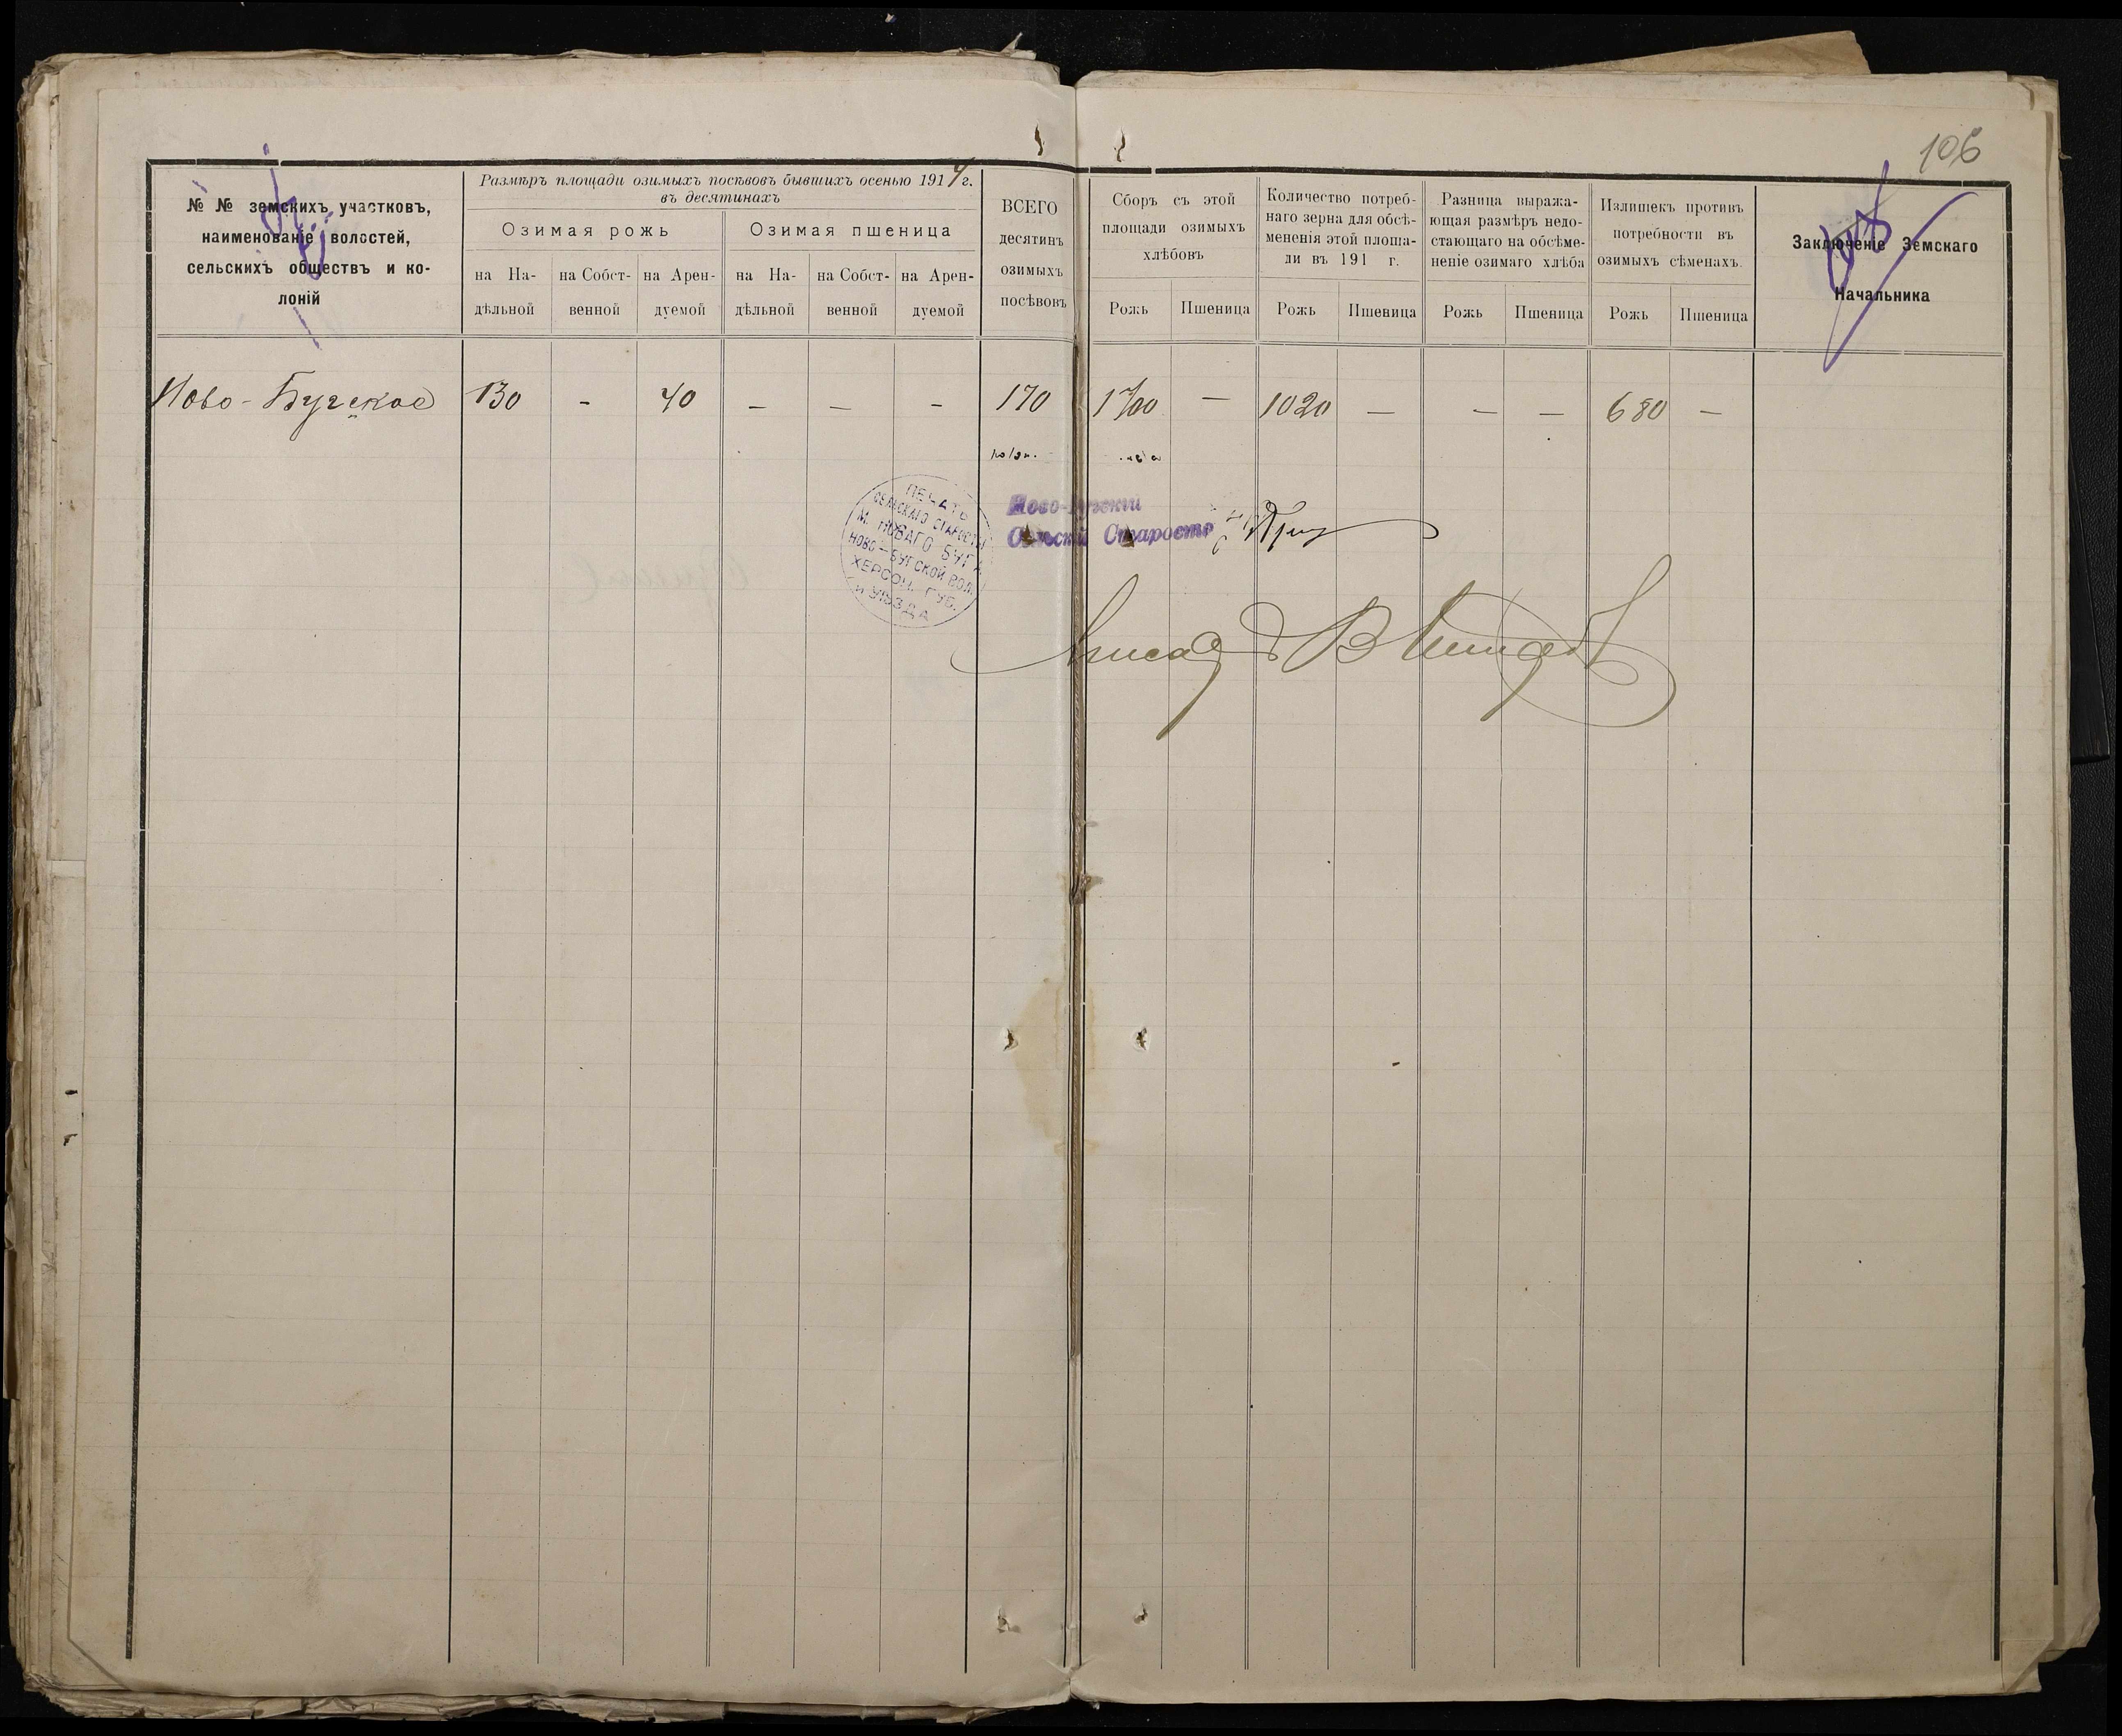 106
№ № земскихъ участковъ,
наименованіе волостей,
сельскихъ обществъ и ко-
лоній
Размѣръ площади озимыхъ посѣвовъ бывшихъ осенью 1914 г.
въ десятинахъ
Озимая рожь
Озимая пшеница
на На-
дѣльной
на Собст-
венной
на Арен-
дуемой
на На-
дѣльной
на Собст-
венной
на Арен-
дуемой
ВСЕГО
десятинъ
озимыхъ
посѣвовъ
Сборъ съ этой
площади озимыхъ
хлѣбовъ
Рожь Пшеница
Количество потреб-
наго зерна для обсѣ-
мененія этой площа-
ди въ 191 г.
Рожь Пшеница
Разница выража-
ющая размѣръ недо-
стающаго на обсѣме-
неніе озимаго хлѣба
Рожь Пшеница
Излишекъ противъ
потребности въ
озимыхъ сѣменахъ.
Рожь Пшеница
Заключеніе Земскаго
Начальника
Ново-Бугское 130 - 40 - - - 170 1700 - 1020 - - - 680 -
ПЕЧАТЬ
СЕЛЬСКАГО СТАРОСТЫ
М. НОВАГО БУГА
НОВО-БУГСКОЙ ВОЛ.
ХЕРСОН. ГУБ.
и УѢЗДА
Ново-Бугскій
Сельскій Староста